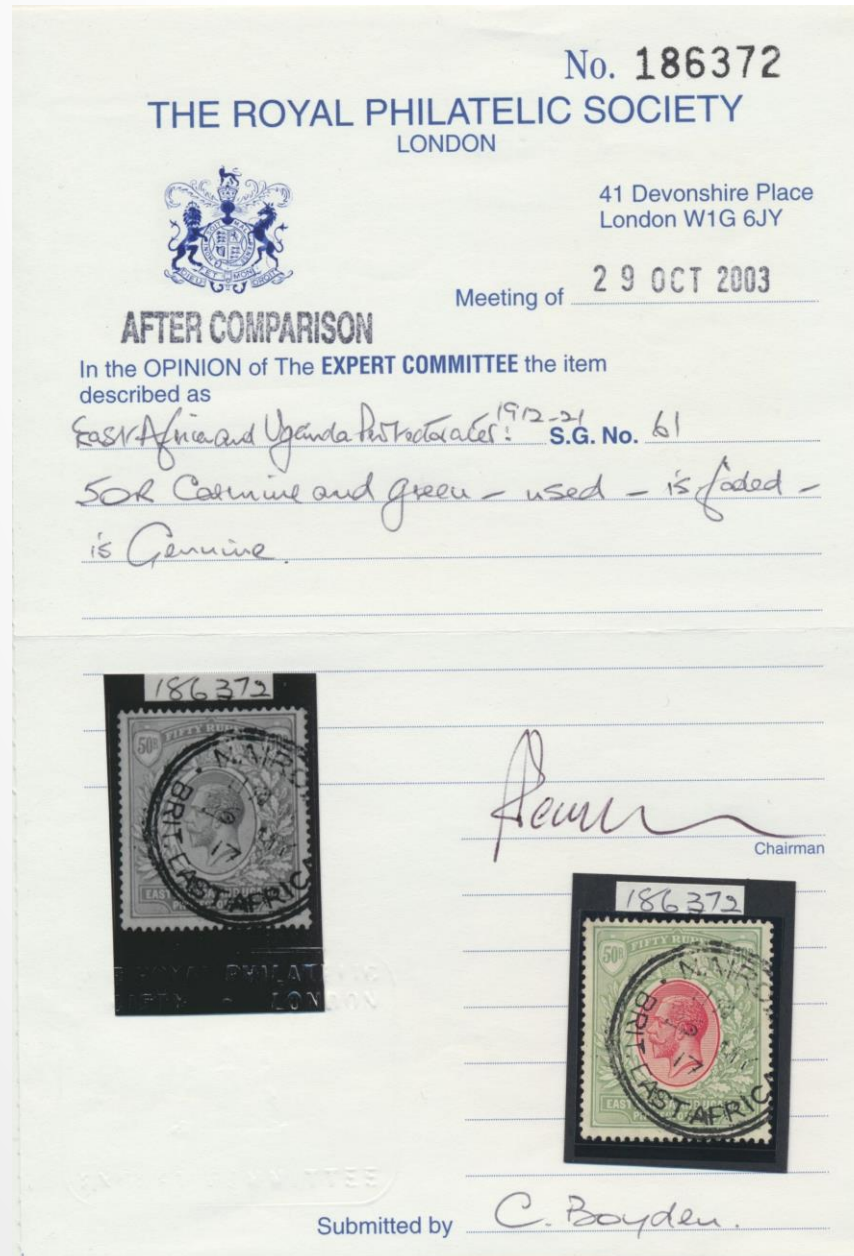 No. 186372
THE ROYAL PHILATELIC SOCIETY
LONDON
41 Devonshire Place
London W1G 6JY
Meeting of 29 OCT 2003
AFTER COMPARISON
In the OPINION of The EXPERT COMMITTEE the item
described as
East Africa and Uganda Protectorates: 1912-21 S.G. No. 61
50R Carmine and green - used - is faded -
is Genuine.
186372
50R FIFTY
NAIRO
BRIT. EAST AFRICA
17
EAST
Chairman
186372
50R FIFTY RUP
NAIRO
BRIT. EAST AFRIC
17
EAST
ROYAL PHILAT
LONDON
Submitted by C. Boyden.